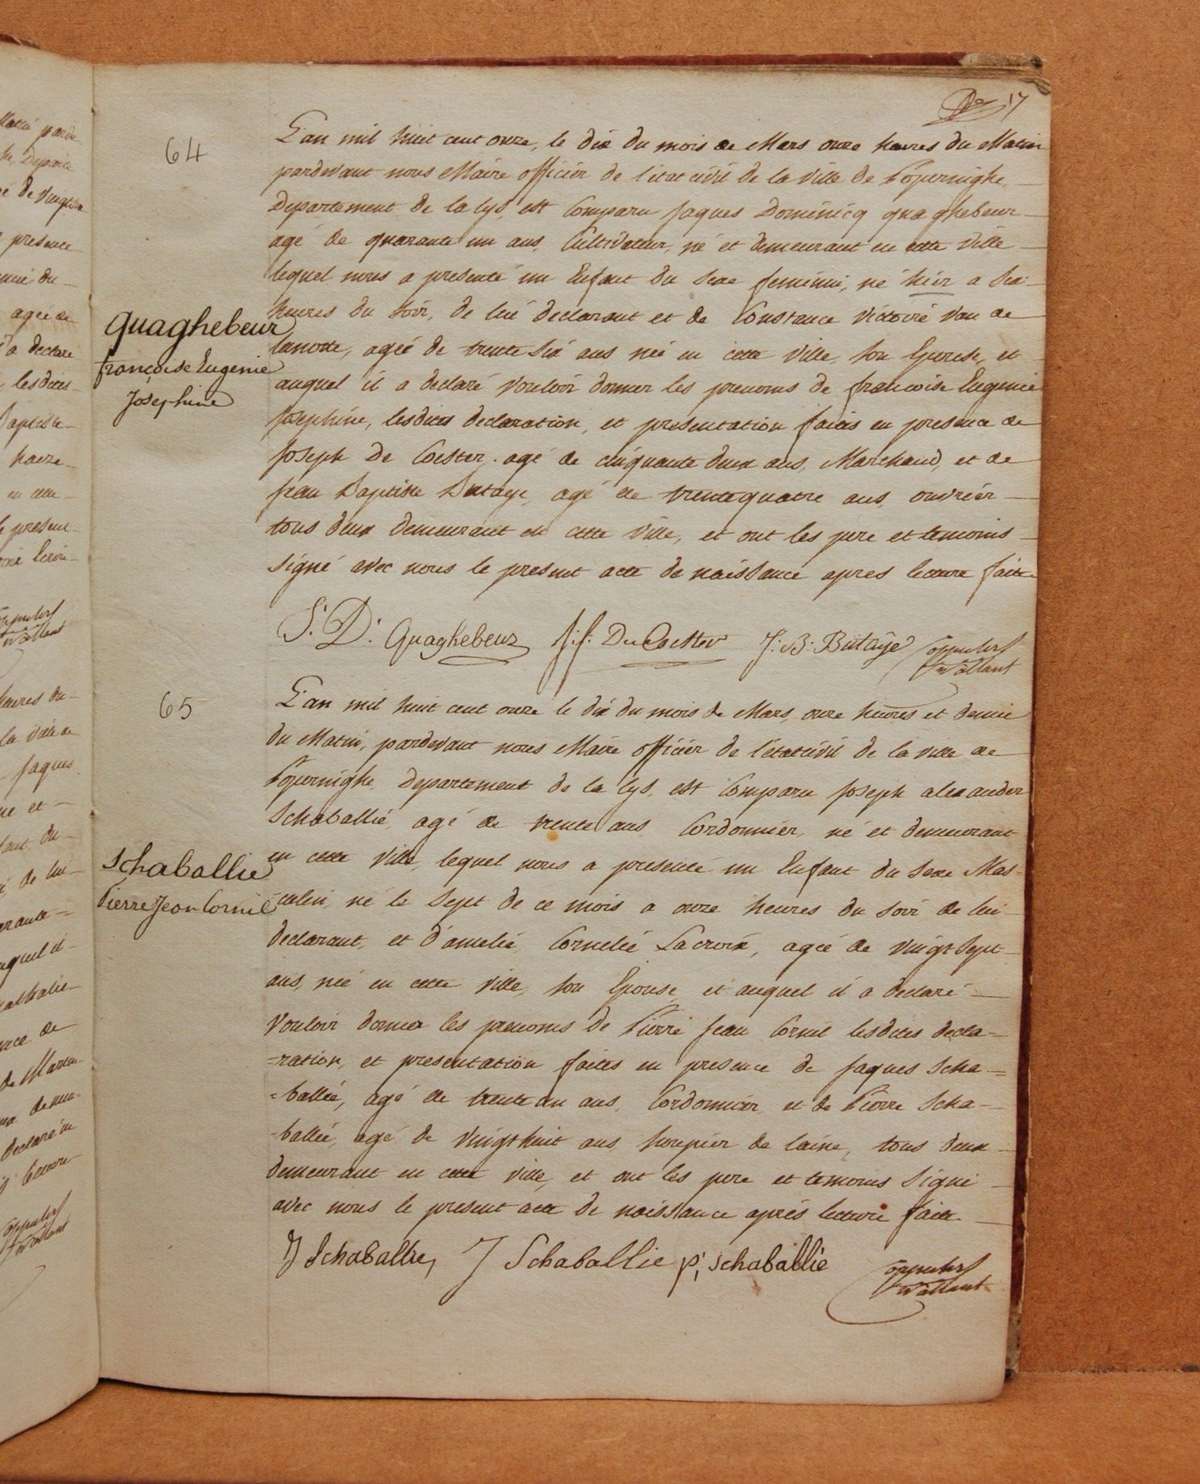 17
64
L'an mil huit cent onze, le dix du mois de Mars onze heures du Matin
pardevant nous Maire officier de l'état civil de la ville de Poperinghe
Departement de la Lys, est Comparu Jaques Dominicq Quaghebeur
agé de quarante un ans, Cultivateur, né et demeurant en cette Ville
lequel nous a presenté un Enfant du Sexe feminin, né hier a Six
heures du soir, de lui declarant et de Constance Victoire Van de
lanotte, agée de trente Six ans née en cette Ville, Son Epouse, et
auquel il a declaré vouloir donner les prenoms de francoise Eugenie
Josephine, lesdites declaration, et presentation faites en presence de
Joseph De Coester agé de cinquante deux ans, Marchand, et de
Jean Baptiste Butaye, agé de trentequatre ans ouvrier
tous deux demeurant en cette ville, et ont les pere et temoins
Signé avec nous le present acte de naissance apres lecture faite
Quaghebeur
françoise Eugenie
Josephine
J. D. Quaghebeur J. J. De Coester J: B: Butaije
65
L'an mil huit cent onze le dix du mois de Mars, onze heures et demie
du Matin, pardevant nous Maire officier de l'état civil de la ville de
Poperinghe, Departement de la Lys, est Comparu Joseph alexander
Schaballié agé de trente ans Cordonnier, né et demeurant
en cette Ville, lequel nous a presenté un Enfant du Sexe Mas-
culin, né le Sept de ce mois a onze heures du soir de lui
declarant, et d'amelie Cornelie Lacroix, agée de Vingt Sept
ans, née en cette ville, Son Epouse, et auquel il a declaré
Vouloir donner les prenoms de Pierre Jean Cornil lesdites decla-
-ration, et presentation faites en presence de Jaques Scha-
-ballié, agé de trente un ans, Cordonnier et de Pierre Scha-
-ballié agé de Vingthuit ans, houpier de laine, tous deux
demeurant en cette ville, et ont les pere et temoins Signé
avec nous le present acte de naissance après lecture faite
Schaballie
Pierre Jean Cornil
J Schaballie, J Schaballie p, schaballie